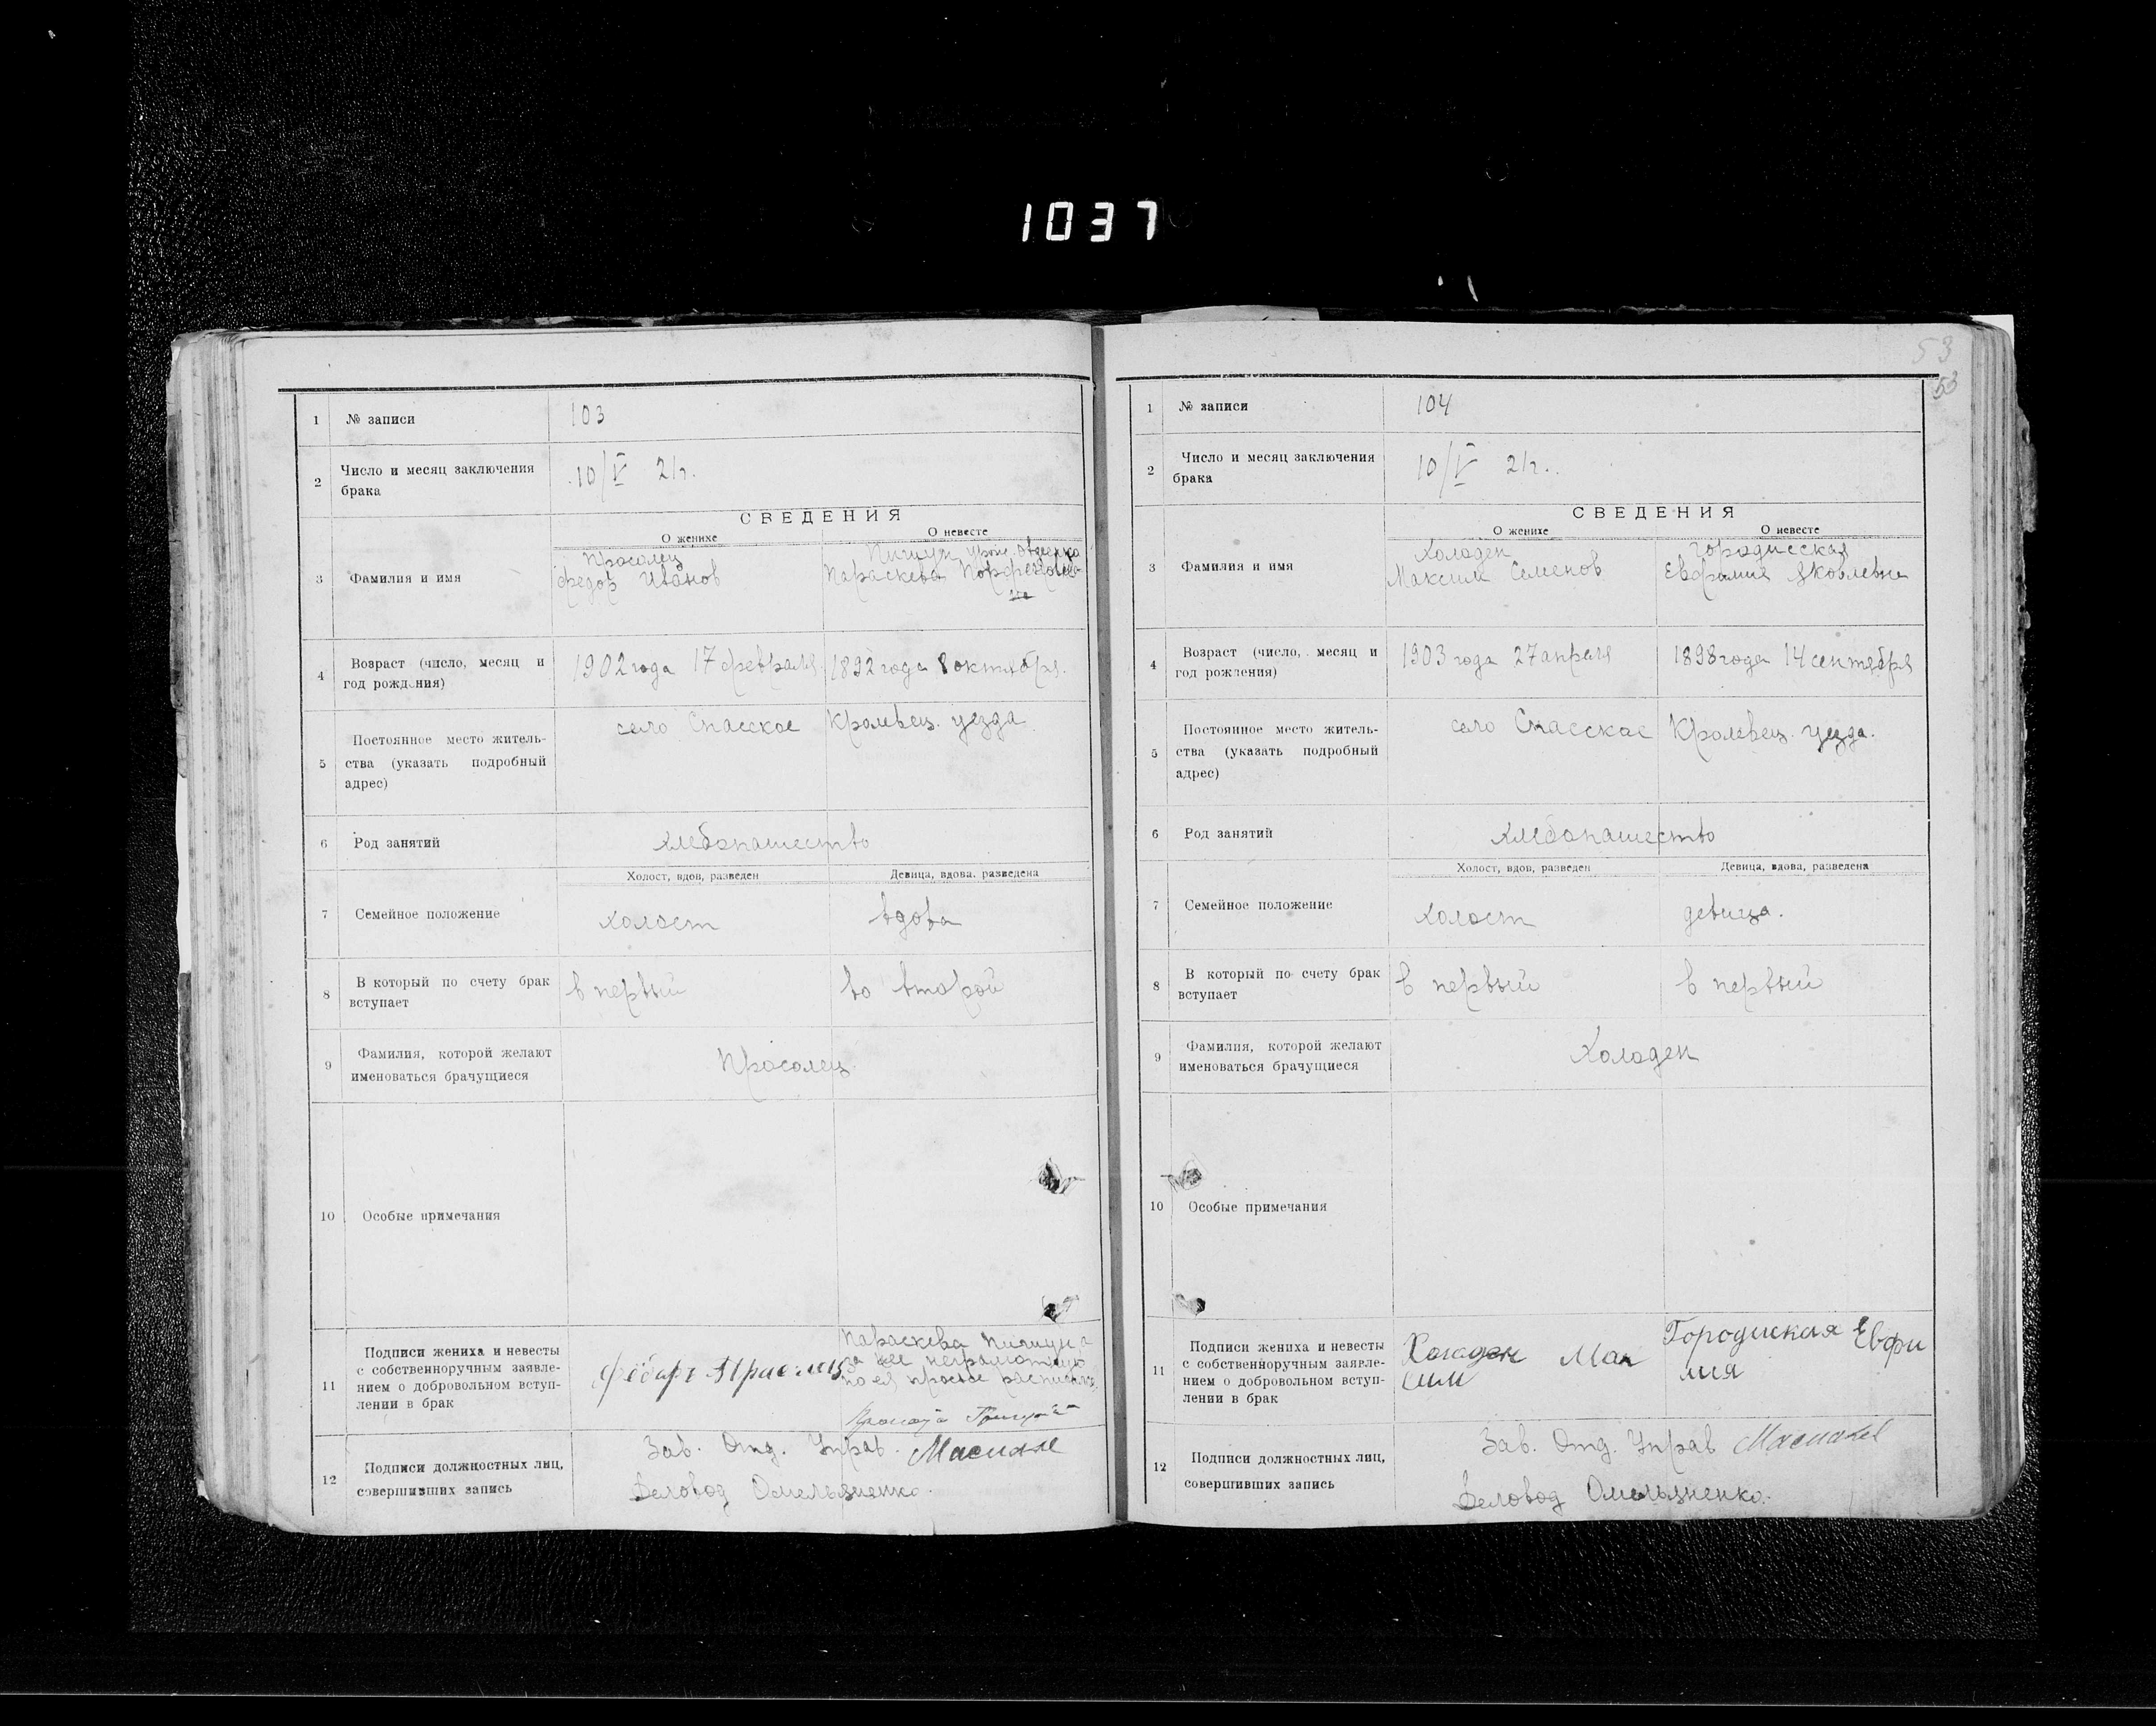 1037
1
№ записи
103
2
Число и месяц заключения
брака
10/V 21г.
СВЕДЕНИЯ
О женихе
О невесте
3
Фамилия и имя
Просолец
Федор Иванов
Пигиун
Параскева
4
Возраст (число, месяц и
год рождения)
1902 года 17 февраля
1892 года 8 октября.
5
Постоянное место житель-
ства (указать подробный
адрес)
село Спасское Кролевец. уезда
6
Род занятий
хлебопашество
Холост, вдов, разведен
Девица, вдова. разведена
7
Семейное положение
холост
вдова
8
В который по счету брак
вступает
в первый
во второй
9
Фамилия, которой желают
именоваться брачущиеся
Просолец
10
Особые примечания
11
Подписи жениха и невесты
с собственноручным заявле-
нием о добровольном вступ-
лении в брак
Параскева
за нее неграмотную
по ея просьбе
12
Подписи должностных лиц,
совершивших запись
Зав. Отд. Управ.
Деловод Омельяненко.
53
53
1
№ записи
104
2
Число и месяц заключения
брака
10/V 21г..
СВЕДЕНИЯ
О женихе
О невесте
3
Фамилия и имя
Холоден
Максим Семенов
Городисская
Евфимия Яковлевна
4
Возраст (число, месяц и
год рождения)
1903 года 27 апреля
1898 года 14 сентября
5
Постоянное место житель-
ства (указать подробный
адрес)
село Спасское Кролевец. уезда.
6
Род занятий
хлебопашество
Холост, вдов, разведен
Девица, вдова, разведена
7
Семейное положение
холост
девица.
8
В который по счету брак
вступает
в первый
в первый
9
Фамилия, которой желают
именоваться брачущиеся
Холоден
10
Особые примечания
11
Подписи жениха и невесты
с собственноручным заявле-
нием о добровольном вступ-
лении в брак
Холоден Мак
сим
Городиская Евфи
мия
12
Подписи должностных лиц,
совершивших запись
Зав. Отд. Управ
Деловод Омельяненко.